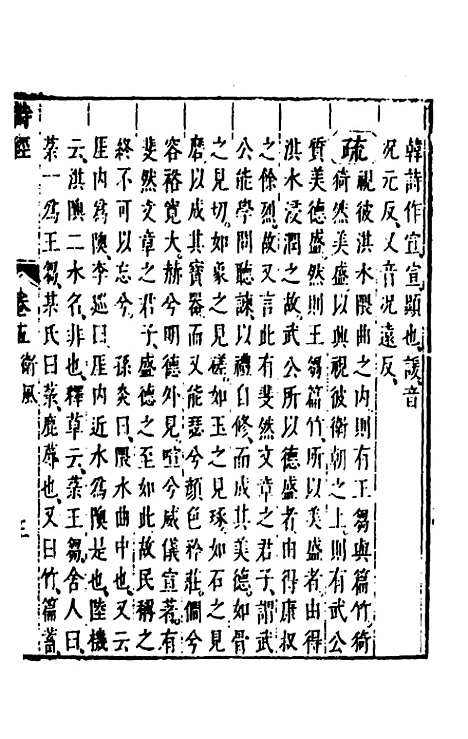 韓詩作宣宣顯也諼音
况元反又音况遠反
疏 視彼淇水隈曲之内則有王芻與篇竹猗
猗然美盛以興視彼衛朝之上則有武公
質美德盛然則王芻篇竹所以美盛者由得
淇水浸潤之故武公所以德盛者由得康叔
之餘烈故又言此有斐然文章之君子謂武
公能學問聽諫以禮自修而成其美德如骨
之見切如象之見磋如玉之見琢如石之見
磨以成其寶器而又能瑟兮顏色矜莊僩兮
容裕寬大赫兮明德外見喧兮威儀宣著有
斐然文章之君子盛德之至如此故民稱之
終不可以忘兮 孫炎曰隈水曲中也又云
厓内爲隩李巡曰厓内近水爲隩是也陸機
云淇隩二水名非也釋草云菉王芻舍人曰
菉一爲王芻某氏曰菉鹿蓐也又曰竹篇蓄
詩經 卷五 衛風 三